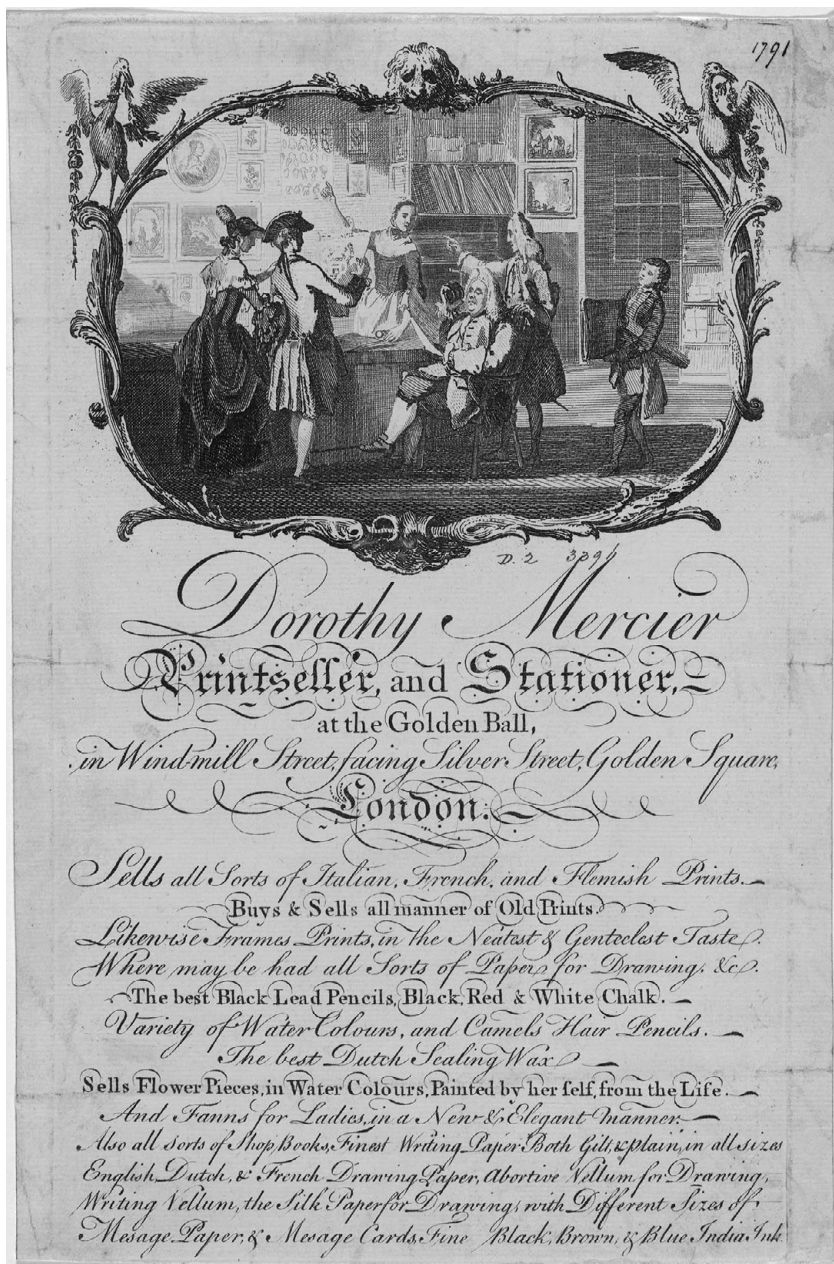 1791
D. 2 3396
Dorothy Mercier
Printseller, and Stationer,
at the Golden Ball,
in Windmill Street, facing Silver Street, Golden Square,
London.
Sells all Sorts of Italian, French, and Flemish Prints.
Buys & Sells all manner of Old Prints.
Likewise Frames Prints, in the Neatest & Genteelest Taste.
Where may be had all Sorts of Paper for Drawing, &c.
The best Black Lead Pencils, Black, Red & White Chalk.
Variety of Water Colours, and Camels Hair Pencils.
The best Dutch Sealing Wax
Sells Flower Pieces, in Water Colours, Painted by her self, from the Life.
And Fanns for Ladies, in a New & Elegant manner.
Also all Sorts of Shop Books, Finest Writing Paper Both Gilt, & plain, in all sizes
English, Dutch, & French Drawing Paper, Abortive Vellum for Drawing,
Writing Vellum, the Silk Paper for Drawing, with Different Sizes of
Mesage Paper, & Mesage Cards, Fine Black, Brown, & Blue India Ink